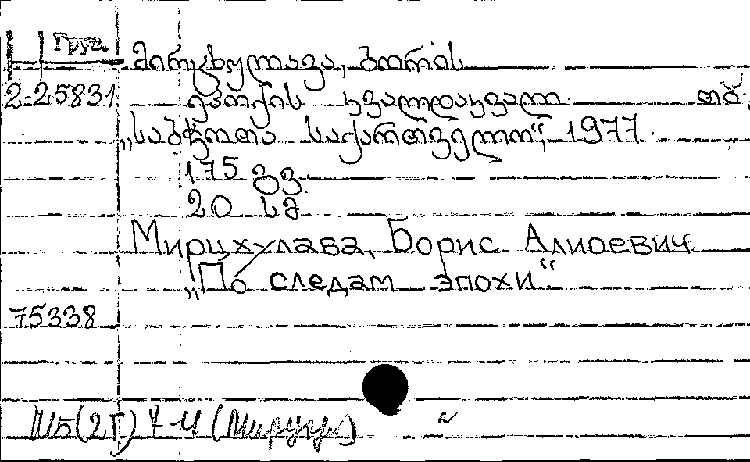 Груз.
მირცხულავა, ბორის
2-25831 ეპოქის კვალდაკვალ თბ.
„საბჭოთა საქართველო“, 1977
175 გვ.
20 სმ
Мирцхулава, Борис Алиоевич
„По следам эпохи“
75338
Ш5(2Г)7-4 (Мирцх)